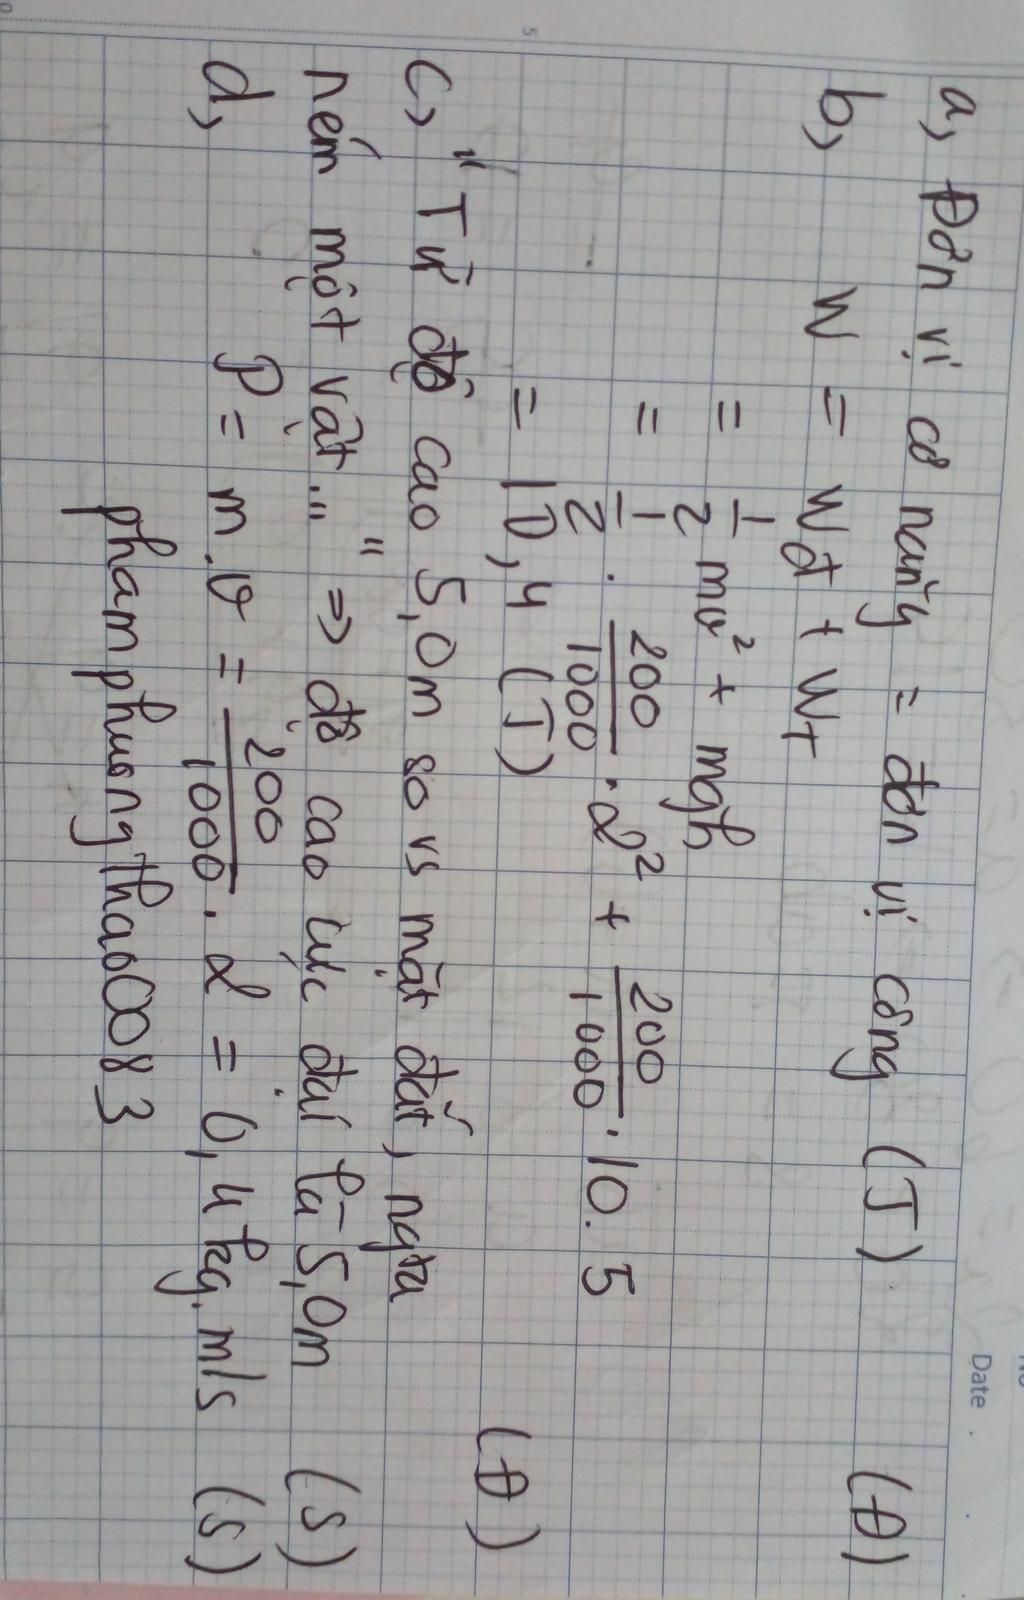 No
Date
5
a, Đơn vị cơ năng = đơn vị công (J) (Đ)
b, W = Wđ + Wt
= 1/2 mv² + mgh
= 1/2 . 200/1000 . 2² + 200/1000 . 10 . 5
= 10,4 (J) (Đ)
c, " Từ độ cao 5,0m so vs mặt đất, người
ném một vật... " => độ cao cực đại là 5,0m (S)
d, P = m.v = 200/1000 . 2 = 0,4 kg.m/s (S)
phamphuongthao0083